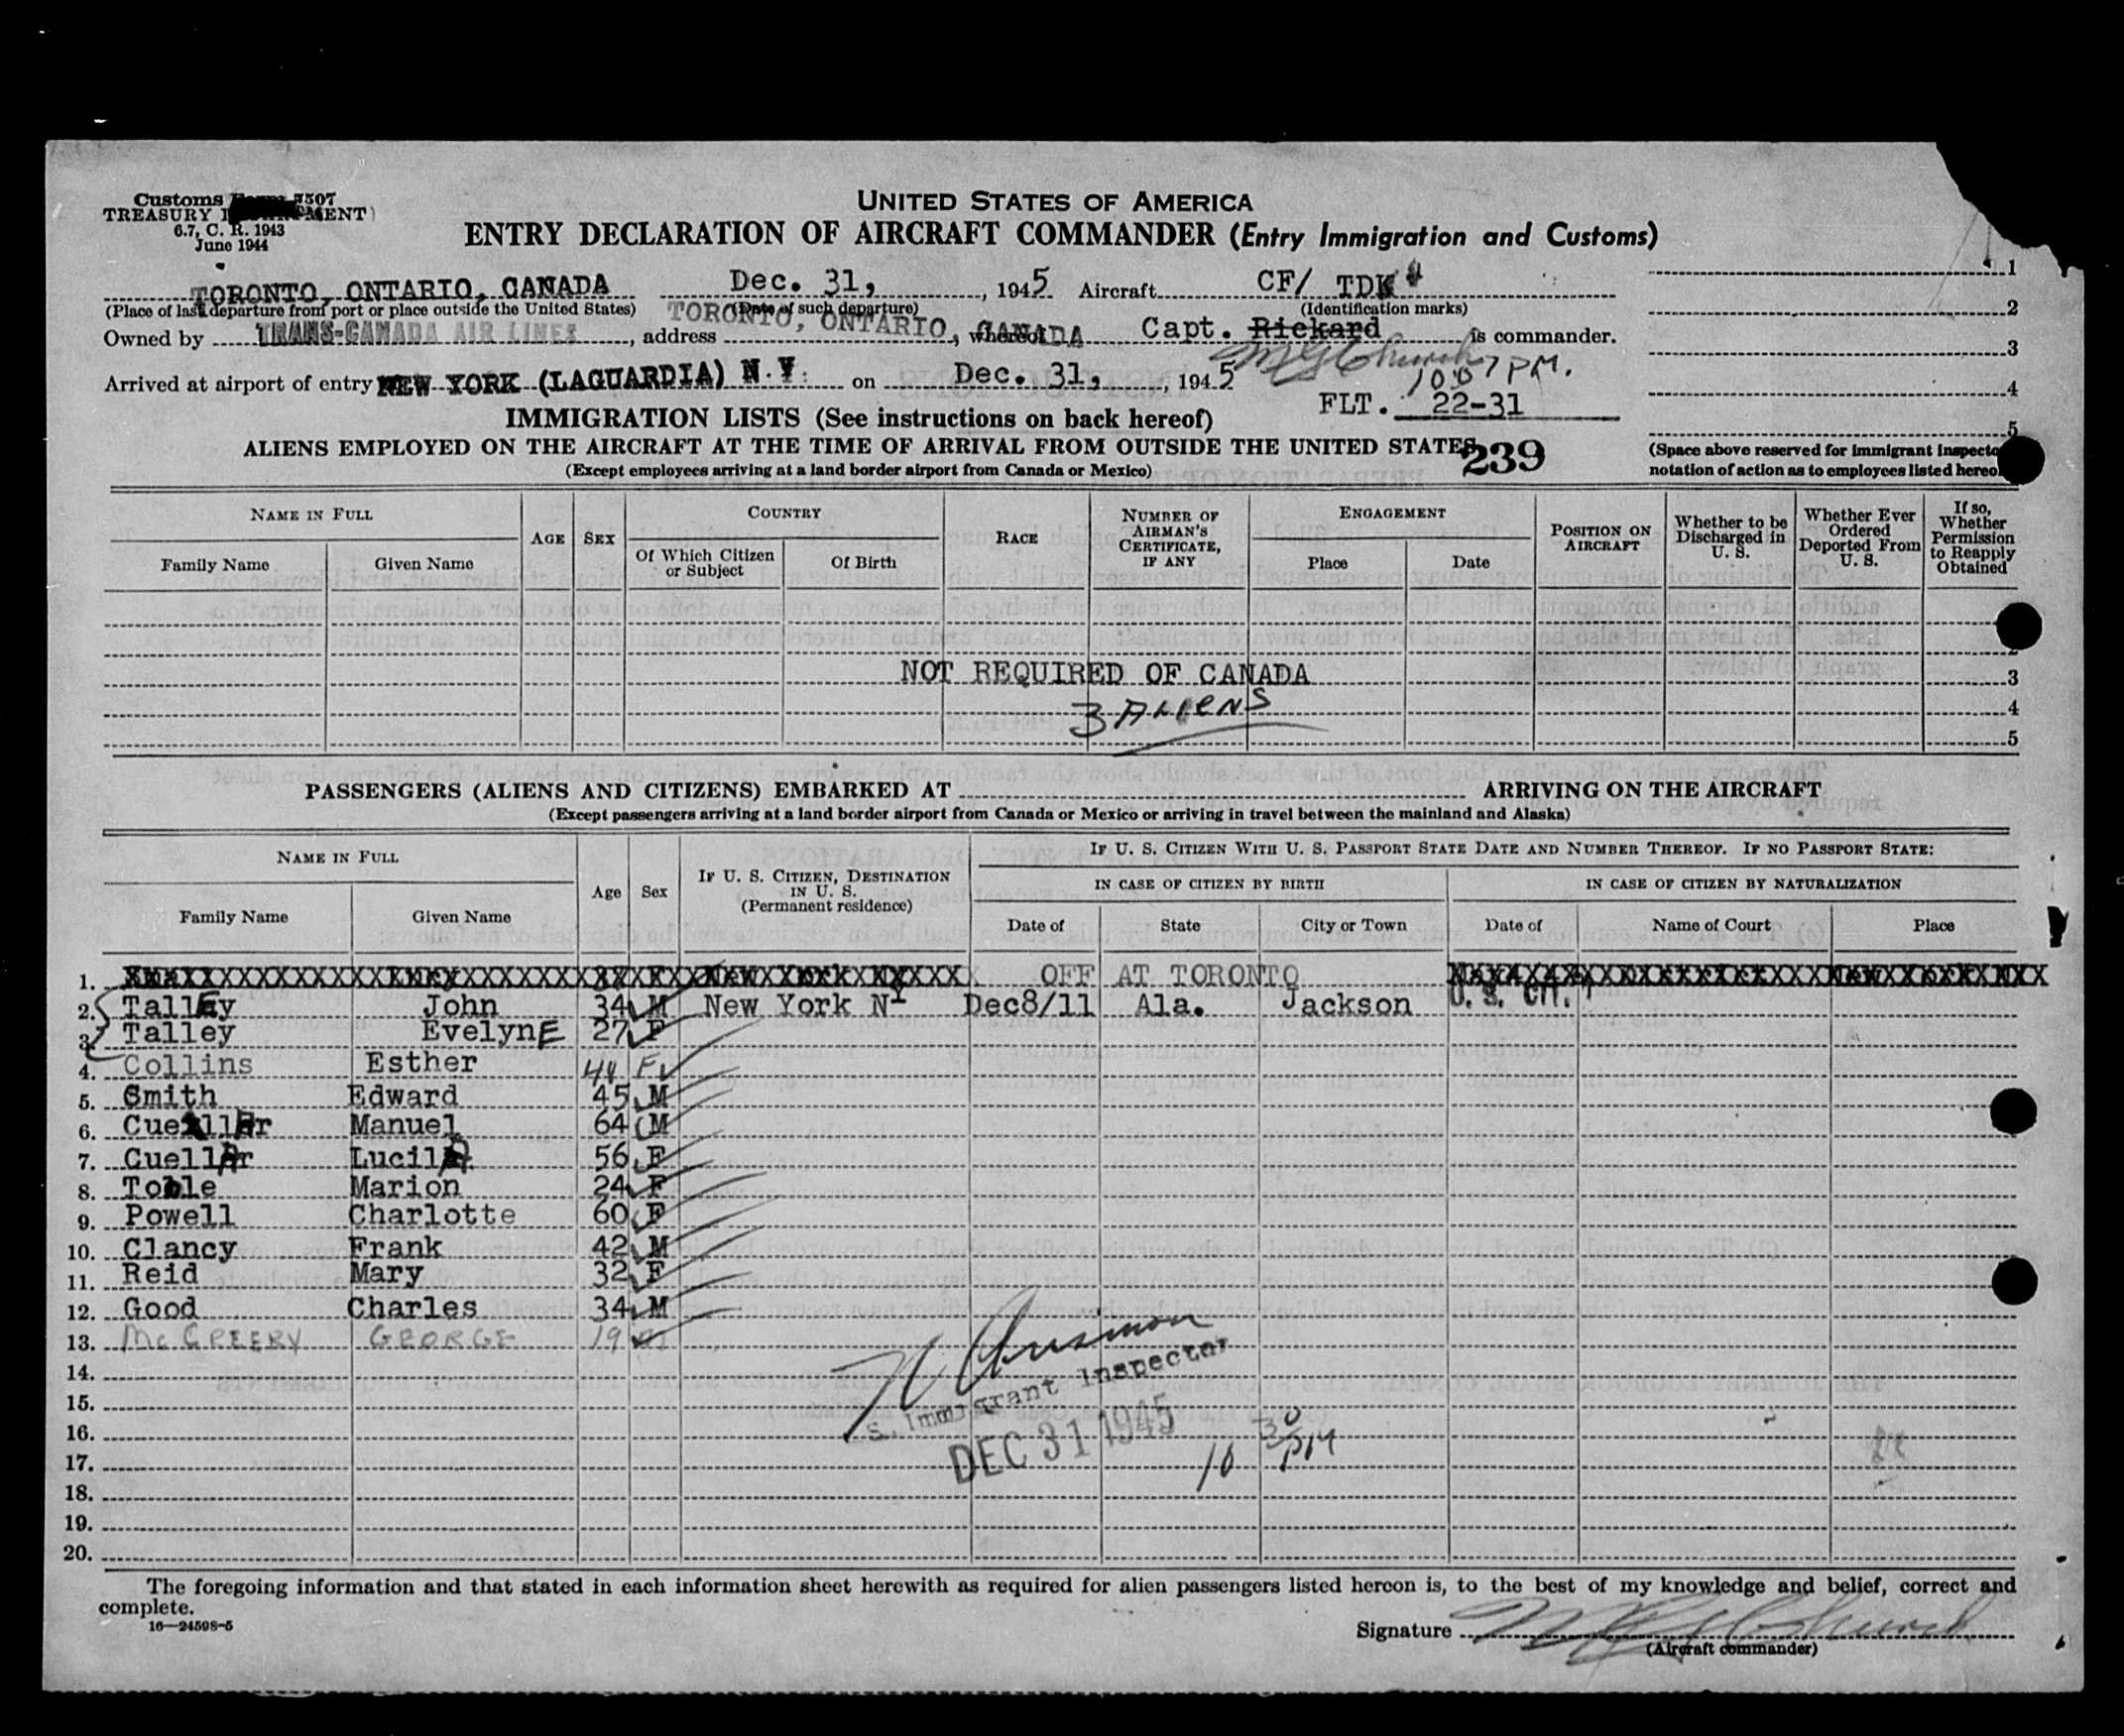 Customs Form 7507
TREASURY DEPARTMENT
6.7, C. R. 1943
June 1944
UNITED STATES OF AMERICA
ENTRY DECLARATION OF AIRCRAFT COMMANDER (Entry Immigration and Customs)
TORONTO, ONTARIO, CANADA Dec. 31, , 1945 Aircraft CF/ TDK
(Place of last departure from port or place outside the United States) (Date of such departure) (Identification marks)
Owned by TRANS-CANADA AIR LINES, address TORONTO, ONTARIO, CANADA, whereof Capt. Rickard is commander.
Church
Arrived at airport of entry NEW YORK (LAGUARDIA) N.Y. on Dec. 31, , 1945 1007 PM.
IMMIGRATION LISTS (See instructions on back hereof) FLT. 22-31
ALIENS EMPLOYED ON THE AIRCRAFT AT THE TIME OF ARRIVAL FROM OUTSIDE THE UNITED STATES 239
(Except employees arriving at a land border airport from Canada or Mexico)
1
2
3
4
5
(Space above reserved for Immigrant Inspecto
notation of action as to employees listed hereo
NAME IN FULL AGE SEX COUNTRY RACE NUMBER OF AIRMAN'S CERTIFICATE, IF ANY ENGAGEMENT POSITION ON AIRCRAFT Whether to be Discharged in U. S. Whether Ever Ordered Deported From U. S. If so, Whether Permission to Reapply Obtained
Family Name Given Name Of Which Citizen or Subject Of Birth Place Date
NOT REQUIRED OF CANADA 3
3 ALIENS 4
5
PASSENGERS (ALIENS AND CITIZENS) EMBARKED AT ARRIVING ON THE AIRCRAFT
(Except passengers arriving at a land border airport from Canada or Mexico or arriving in travel between the mainland and Alaska)
NAME IN FULL Age Sex IF U. S. CITIZEN, DESTINATION IN U. S. (Permanent residence) IF U. S. CITIZEN WITH U. S. PASSPORT STATE DATE AND NUMBER THEREOF. IF NO PASSPORT STATE:
IN CASE OF CITIZEN BY BIRTH IN CASE OF CITIZEN BY NATURALIZATION
Family Name Given Name Date of State City or Town Date of Name of Court Place
1. OFF AT TORONTO
2. Talley John 34 M New York NY Dec8/11 Ala. Jackson U. S. Cit.
3. Talley EvelynE 27 F
4. Collins Esther 44 F
5. Smith Edward 45 M
6. Cuellar Manuel 64 M
7. Cuellar Lucila 56 F
8. Toble Marion 24 F
9. Powell Charlotte 60 F
10. Clancy Frank 42 M
11. Reid Mary 32 F
12. Good Charles 34 M
13. McCREERY GEORGE 19 M
14.
15. S. Immigrant Inspector
16. DEC 31 1945
17. 10 30 PM
18.
19.
20.
The foregoing information and that stated in each information sheet herewith as required for alien passengers listed hereon is, to the best of my knowledge and belief, correct and
complete.
16—24598-5
Signature Church
(Aircraft commander)